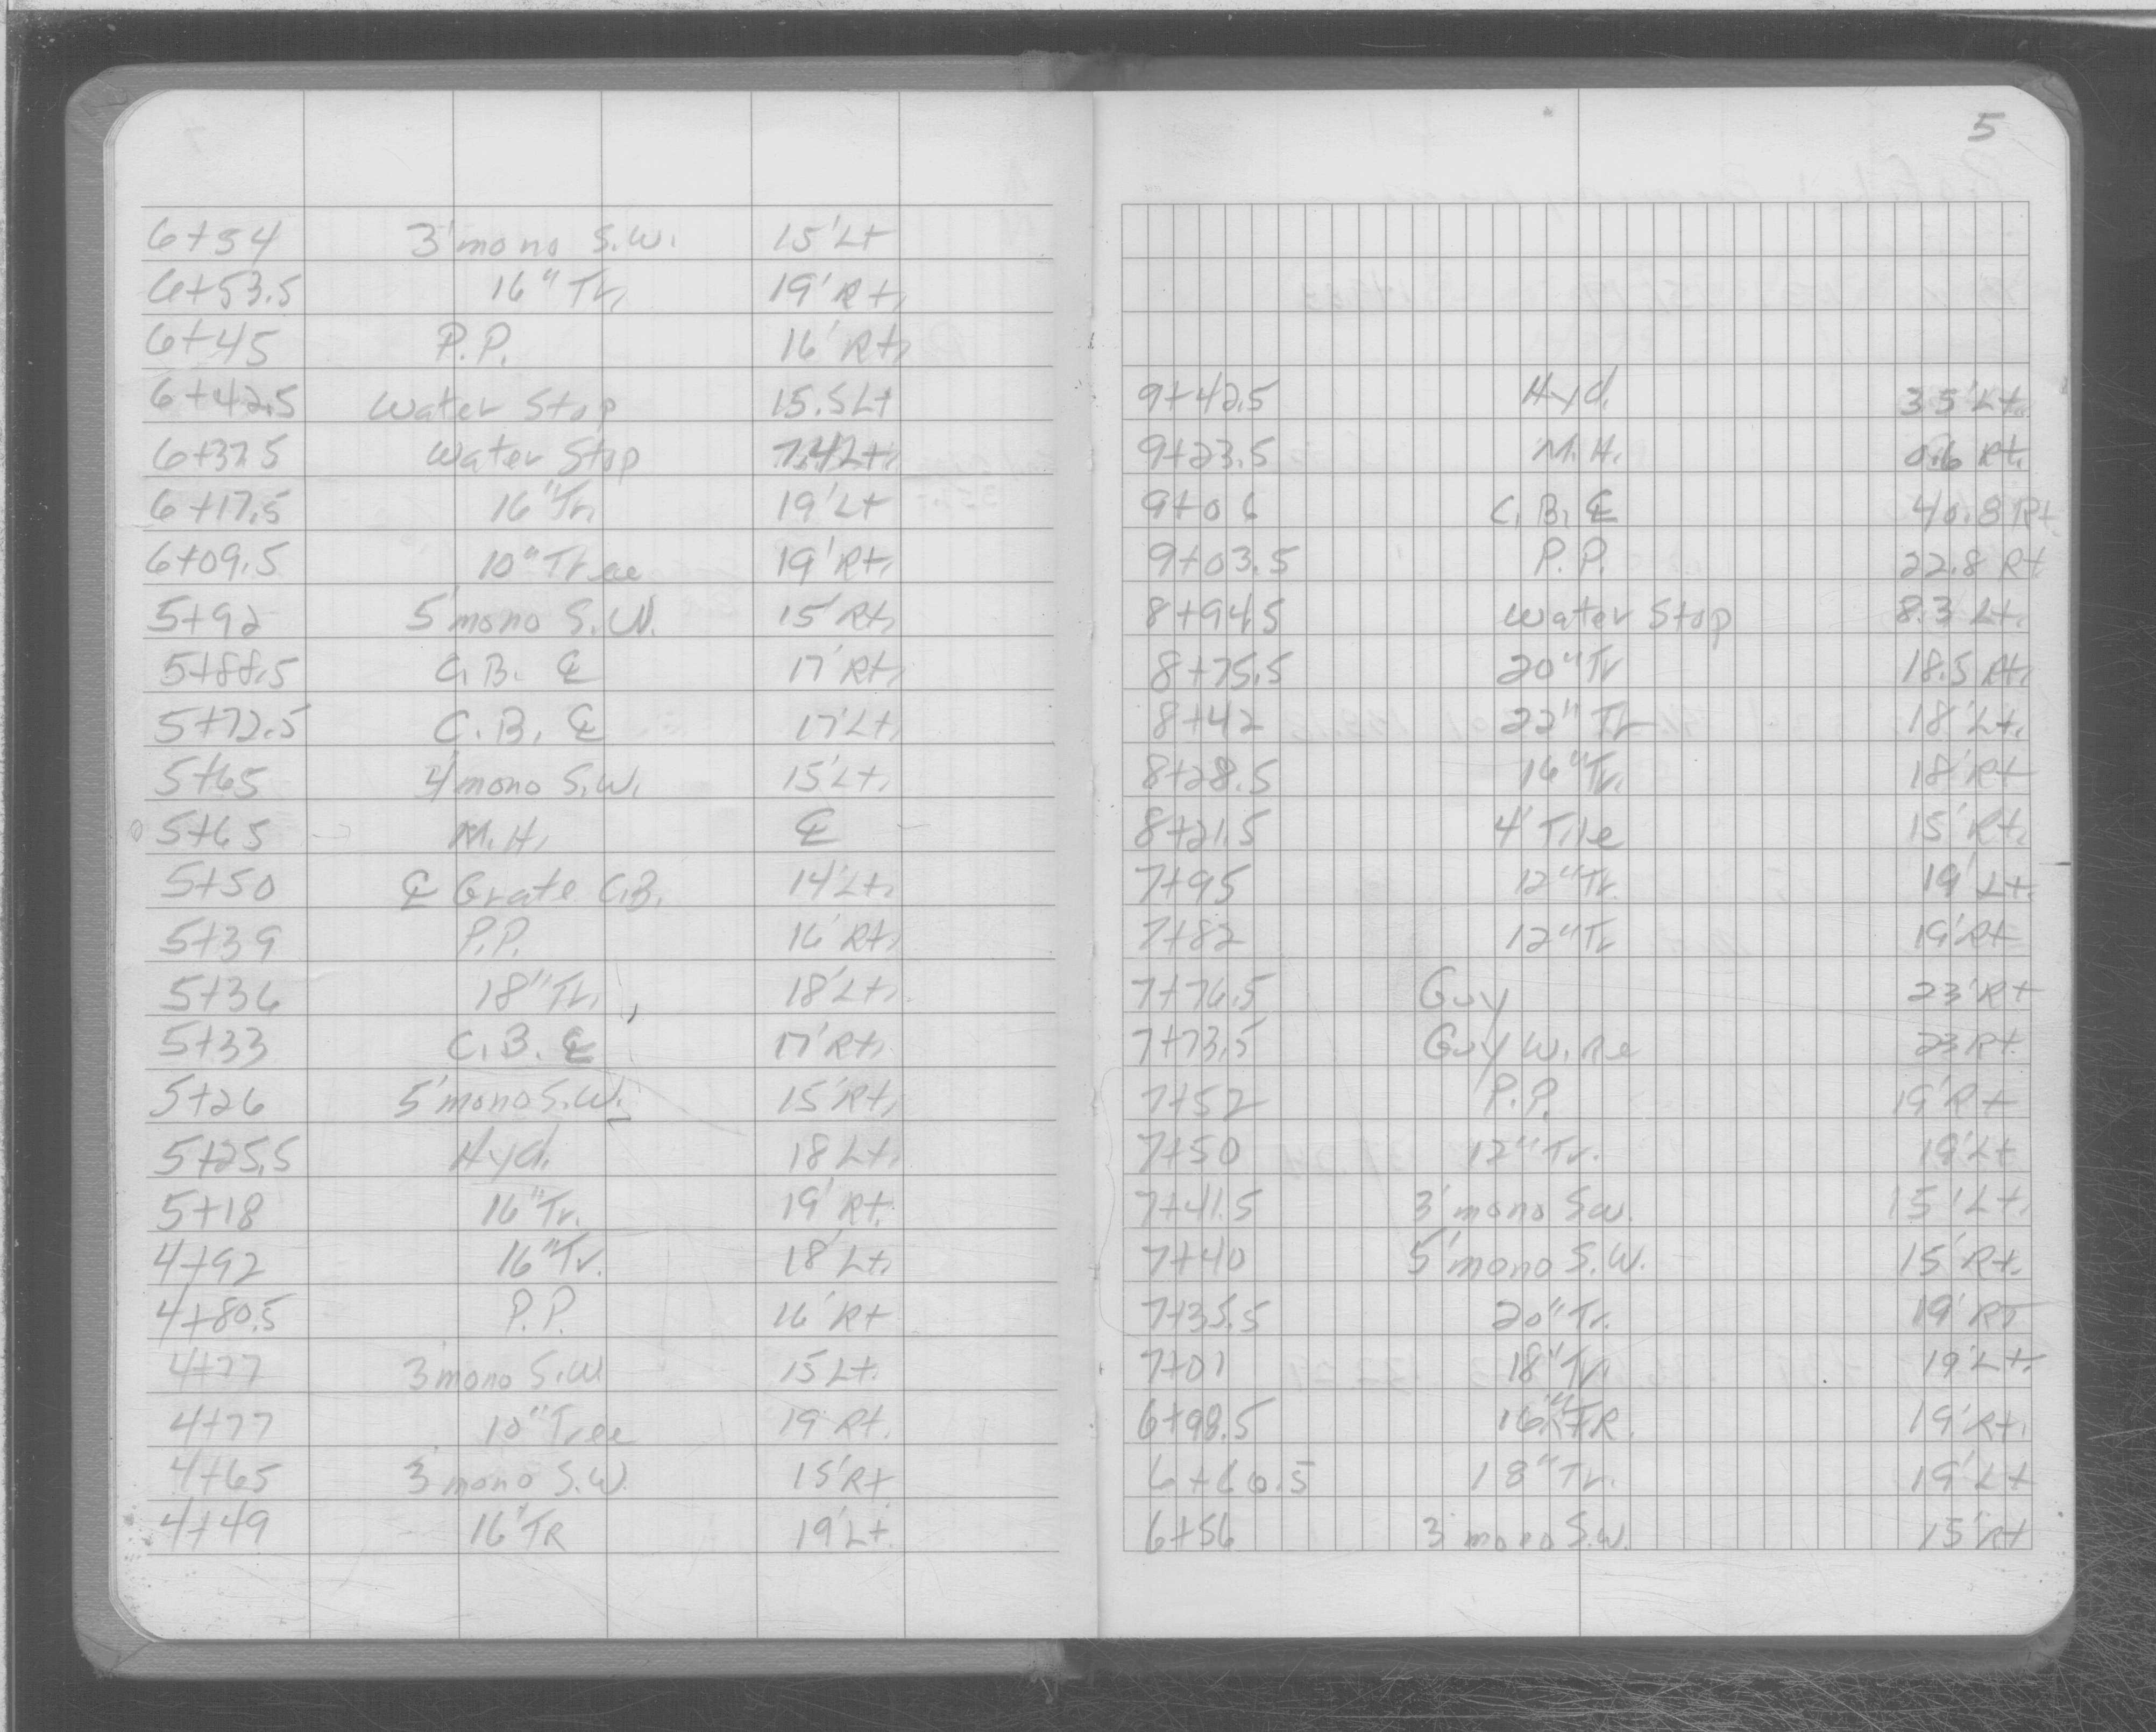 6+54 3' mono S.W. 15' Lt
6+53.5 16" Tr. 19' Rt.
6+45 P.P. 16' Rt.
6+42.5 Water Stop 15.5 Lt
6+37.5 Water Stop 7.4 Lt.
6+17.5 16" Tr. 19' Lt
6+09.5 10" Tree 19' Rt.
5+92 5' mono S.W. 15' Rt.
5+88.5 C.B. ℄ 17' Rt.
5+72.5 C.B. ℄ 17' Lt.
5+65 4' mono S.W. 15' Lt.
5+65 M.H. ℄
5+50 ℄ Grate C.B. 14' Lt.
5+39 P.P. 16' Rt.
5+36 18" Tr. 18' Lt.
5+33 C.B. ℄ 17' Rt.
5+26 5' mono S.W. 15' Rt.
5+25.5 Hyd. 18 Lt.
5+18 16" Tr. 19' Rt.
4+92 16" Tr. 18' Lt.
4+80.5 P.P. 16' Rt
4+77 3' mono S.W. 15 Lt.
4+77 10" Tree 19 Rt.
4+65 3' mono S.W. 15' Rt
4+49 16" TR 19' Lt.
5
9+42.5 Hyd. Lt.
9+23.5 M.H. 0.6 Rt.
9+06 C.B. ℄ 40.8 Rt.
9+03.5 P.P. 22.8 Rt
8+94.5 Water Stop 8.3 Lt.
8+75.5 20" Tr 18.5 Rt.
8+42 22" Tr 18' Lt.
8+28.5 16" Tr. 18' Rt
8+21.5 4' Tile 15' Rt.
7+95 12" Tr. 19' Lt.
7+82 12" Tr 19' Rt
7+76.5 Guy 23' Rt
7+73.5 Guy Wire 23 Rt.
7+52 P.P. 19' Rt
7+50 12" Tr. 19' Lt
7+41.5 3' mono S.W. 15' Lt.
7+40 5' mono S.W. 15' Rt.
7+35.5 20" Tr. 19' RT
7+01 18" Tr. 19' Lt.
6+98.5 16" TR. 19' Rt.
6+60.5 18" Tr. 19' Lt
6+56 3' mono S.W. 15' Rt